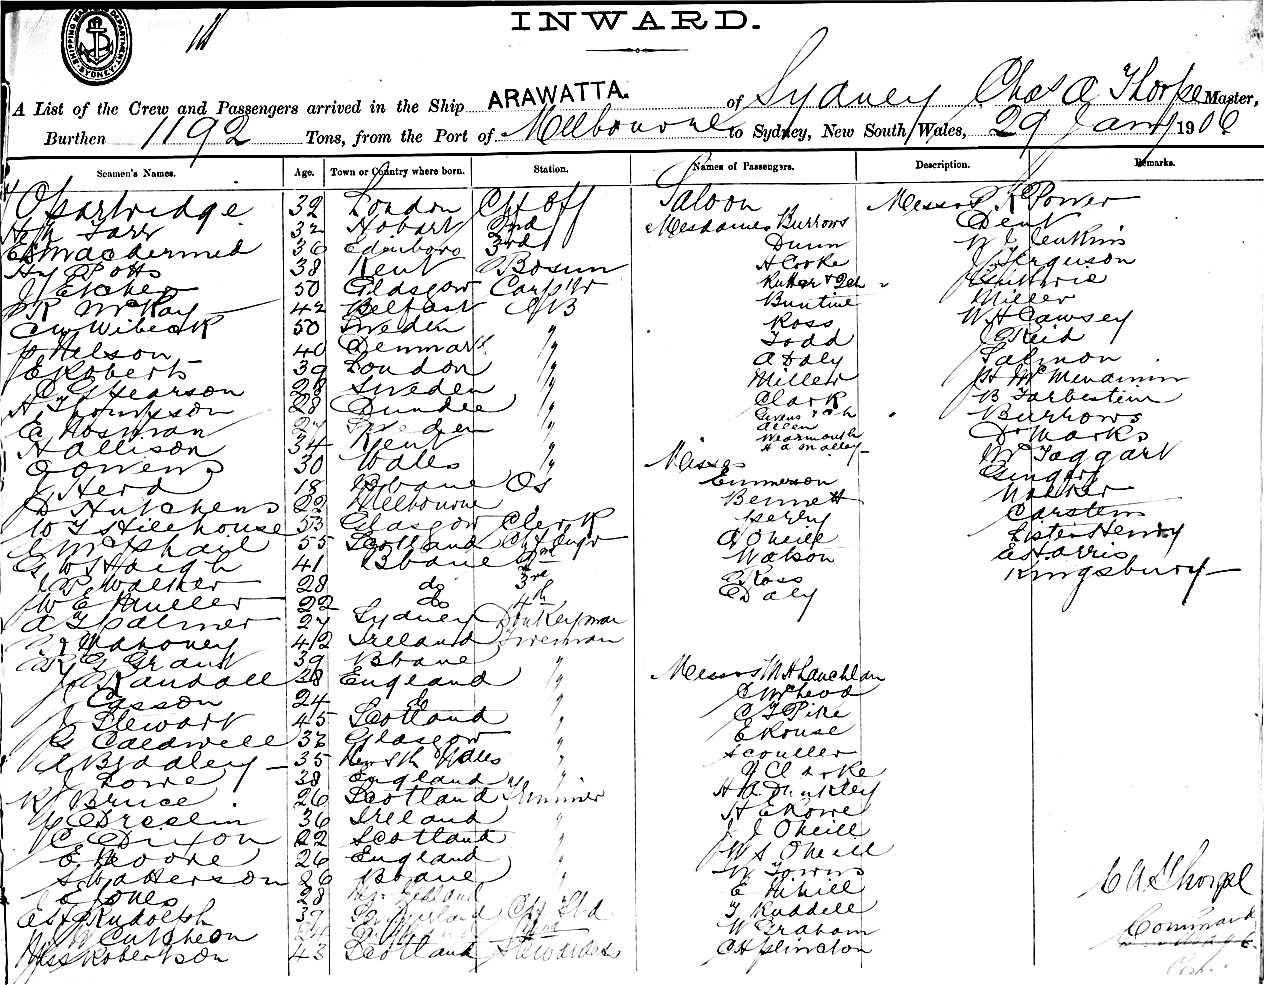 SHIPPING MASTERS DEPARTMENT SYDNEY
INWARD.
A List of the Crew and Passengers arrived in the Ship ARAWATTA. of Sydney Chas A Thorpe Master,
Burthen 1192 Tons, from the Port of Melbourne to Sydney, New South Wales, 29 Jany 1906
Seamen's Names. Age. Town or Country where born. Station. Names of Passengers. Description. Remarks.
O Partridge 39 London Chf Off Saloon Messrs R Power
Tarr 32 Hobart 2nd Mesdames Burrows Dent
MacDermid 36 Edinboro 3rd Dunn Jenkins
Potts 38 Kent Bosun A Cooke Ferguson
J Etcher 50 Glasgow Carptr Guthrie
R McKay 42 Belfast AB Buntine Miller
Wibeck 50 Sweden " Ross W H Cawsey
P Nelson 40 Denmark " Todd Reid
E Roberts 39 London " A Daly Salmon
Hearson 28 Sweden " Miller
Thompson 28 Dundee " Clark
E Nosman 27 Sweden " Allen Burrows
H Allison 34 Kent " Wearmouth Dr Marks
O Owens 30 Wales " Misses McTaggart
J Herd 18 Bbane OS Emmerson
D Hutchens 22 Melbourne " Bennett Walker
W T Hillhouse 53 Glasgow Clerk Carstens
McPhail 55 Scotland Chf Engr A O'Neill Lister Henry
G W Haigh 41 Bbane 2nd Watson E Harris
Walker 28 do 3rd E Ross Kingsbury
W E Muller 22 do 4th E Daly
A T Palmer 27 Sydney Donkeyman
Mahoney 42 Ireland Fireman
R G Grant 39 Bbane "
J Randall 28 England " Messrs McLauchlan
J Casson 24 do " McLeod
J Stewart 45 Scotland " C T Pike
G Caldwell 32 Glasgow " E Rouse
A Bradley 35 New Sth Wales " Scouller
J Lowe 38 England " J Clarke
R J Bruce 26 Scotland Trimmer H A Dunkley
Breslin 36 Ireland " H E Rowe
C Dixon 22 Scotland " J J O'Neill
E Moore 26 England " W S O'Neill
S Watterson 26 Bbane " W Towns
J E Jones 28 E Mihill C A Thorpe
Rudolph 39 Chf Std T Ruddell Command
McCutcheon W Graham
Miss Robertson 43 Scotland Stewardess C H Plincton